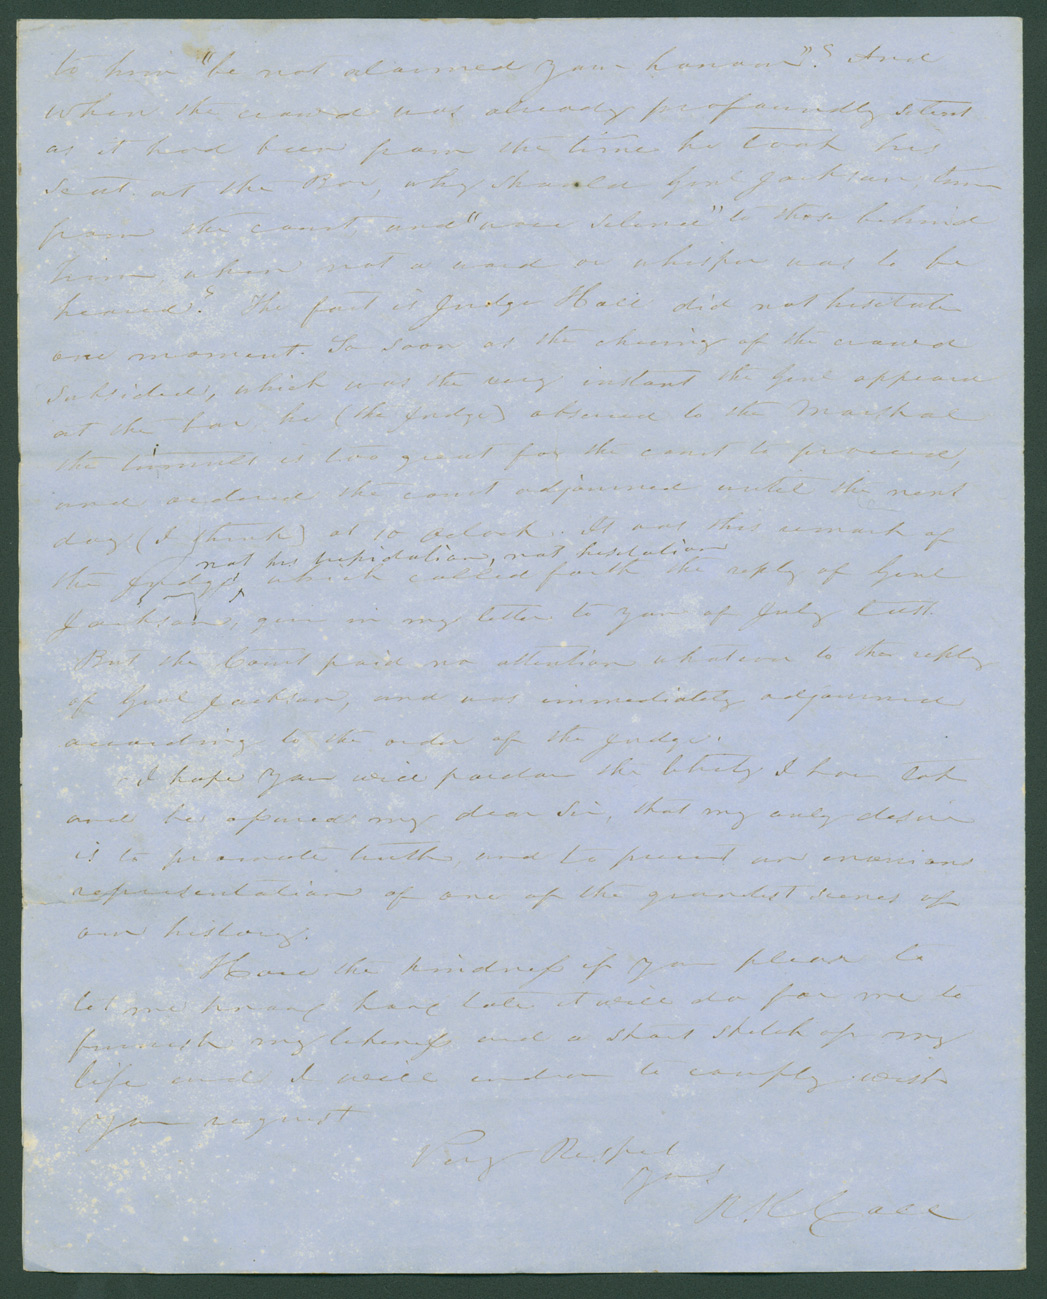 to him "be not alarmed your honour"? And
when the crowd was already profoundly silent
as it had been from the time he took his
seat at the Bar, why should Genl Jackson, turn
from the court, and "wave silence" to those behind
him, when not a word or whisper was to be
heard? The fact is Judge Hall did not hesitate
one moment. So soon as the cheering of the crowd
subsided, which was the very instant the Genl appeared
at the bar, he (the Judge) observed to the Marshal
the tumult is too great for the court to proceed,
and ordered the court adjourned until the next
day (I think) at 10 oclock. It was this remark of
not his trepidation, not hesitation
the Judge, which called forth the reply of Genl
Jackson, given in my letter to you of July
But the Court paid no attention whatever to the reply
of Genl Jackson, and was immediately adjourned
according to the order of the Judge.
I hope you will pardon the liberty I have
and be assured my dear Sir, that my only desire
is to promote truth, and to prevent an
representation of one of the grandest scenes of
our history.
Have the kindness if you please to
let me know how late it will do for me to
furnish my likeness and a short sketch of my
life and I will endeavor to comply with
your request
Very Respect
Yours
R. K. Call